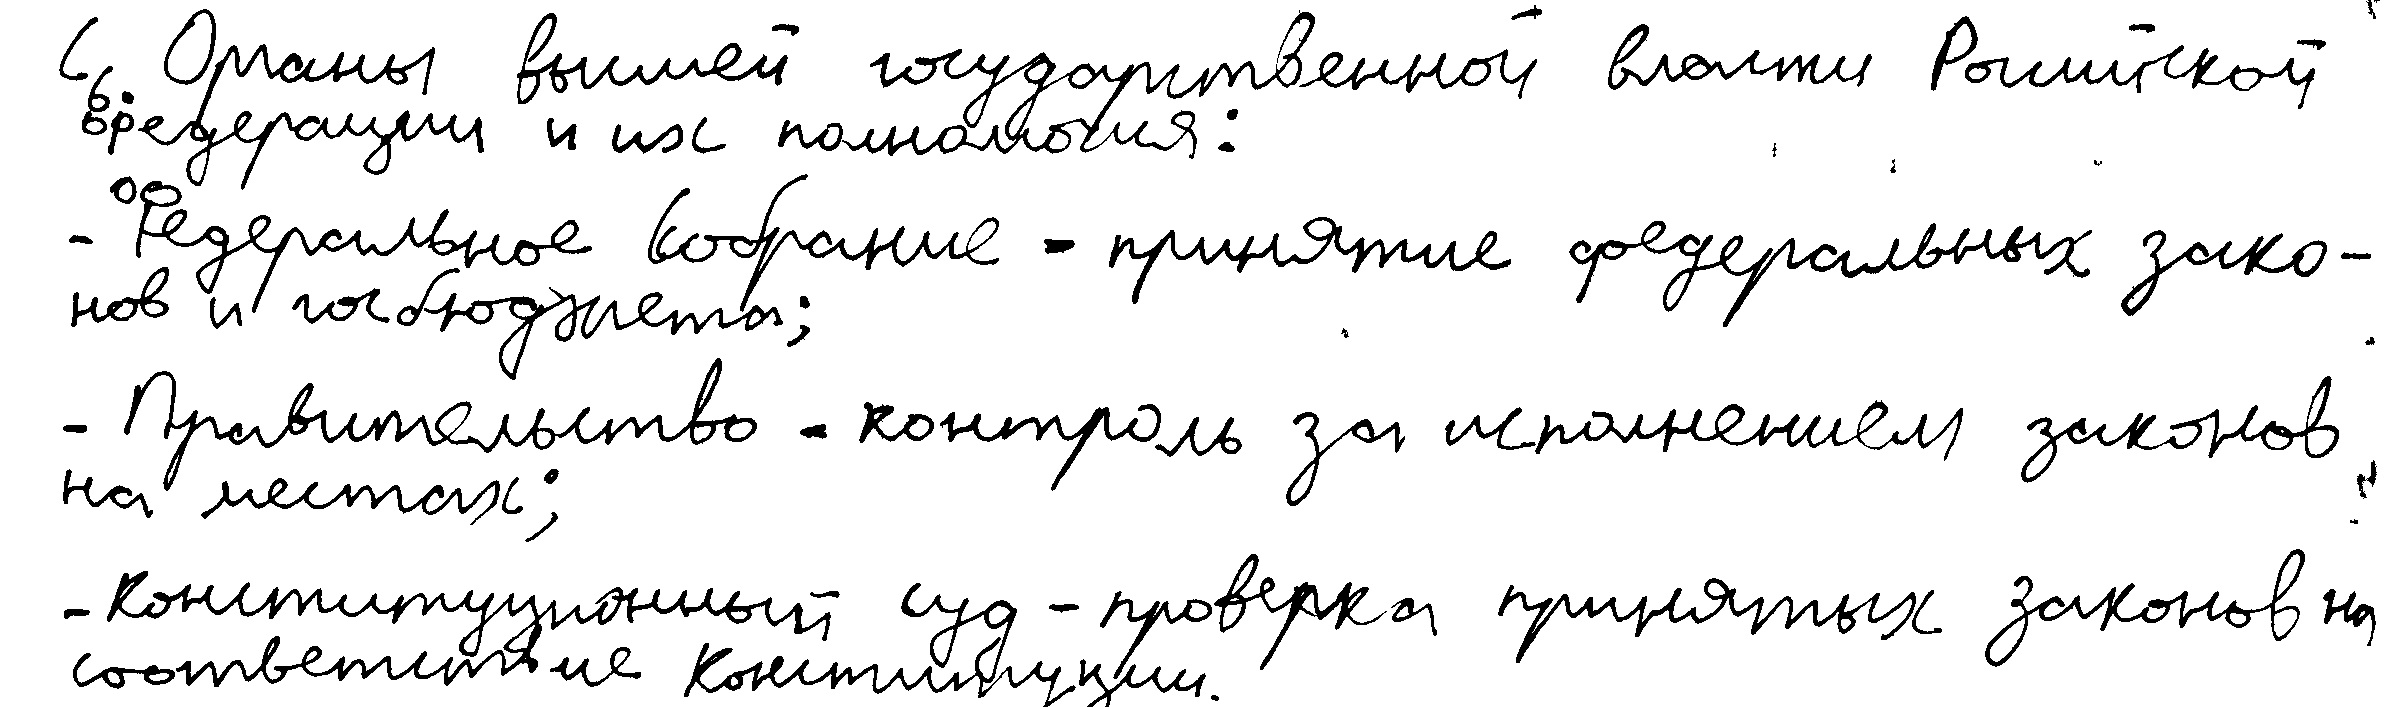 6. Органы высшей государственной власти Российской
Федерации и их полномочия:
- Федеральное Собрание - принятие федеральных зако-
нов и госбюджета;
- Правительство - контроль за исполнением законов
на местах;
- Конституционный суд - проверка принятых законов на
соответствие Конституции.